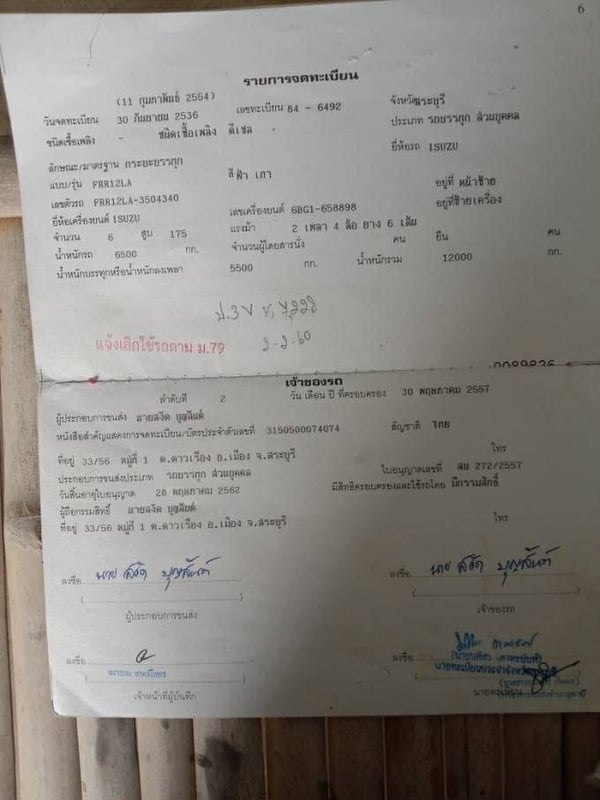 6
รายการจดทะเบียน
(11 กุมภาพันธ์ 2554)
วันจดทะเบียน 30 กันยายน 2536 เลขทะเบียน 84 - 6492 จังหวัดสระบุรี
ชนิดเชื้อเพลิง - ชนิดเชื้อเพลิง ดีเซล ประเภท รถบรรทุก ส่วนบุคคล
ยี่ห้อรถ ISUZU
ลักษณะ/มาตรฐาน กระบะบรรทุก
แบบ/รุ่น FRR12LA สี ฟ้า เทา
เลขตัวรถ FRR12LA-3504340 เลขเครื่องยนต์ 6BG1-658898 อยู่ที่ หน้าซ้าย
ยี่ห้อเครื่องยนต์ ISUZU อยู่ที่ซ้ายเครื่อง
จำนวน 6 สูบ 175 แรงม้า 2 เพลา 4 ล้อ ยาง 6 เส้น
น้ำหนักรถ 6500 กก. จำนวนผู้โดยสารนั่ง คน ยืน คน
น้ำหนักบรรทุกหรือน้ำหนักลงเพลา 5500 กก. น้ำหนักรวม 12000 กก.
แจ้งเลิกใช้รถตาม ม.79 2-2-60
เจ้าของรถ
ลำดับที่ 2 วัน เดือน ปี ที่ครอบครอง 30 พฤษภาคม 2557
ผู้ประกอบการขนส่ง นายสงัด
หนังสือสำคัญแสดงการจดทะเบียน/บัตรประจำตัวเลขที่ 3150500074074 สัญชาติ ไทย
ที่อยู่ 33/56 หมู่ที่ 1 ต.ดาวเรือง อ.เมือง จ.สระบุรี โทร
ประกอบการขนส่งประเภท รถบรรทุก ส่วนบุคคล ใบอนุญาตเลขที่ สบ 272/2557
วันสิ้นอายุใบอนุญาต 28 พฤษภาคม 2562 มีสิทธิครอบครองและใช้รถโดย มีกรรมสิทธิ์
ผู้ถือกรรมสิทธิ์ นายสงัด
ที่อยู่ 33/56 หมู่ที่ 1 ต.ดาวเรือง อ.เมือง จ.สระบุรี โทร
ลงชื่อ นาย สงัด ลงชื่อ นาย สงัด
ผู้ประกอบการขนส่ง เจ้าของรถ
ลงชื่อ ลงชื่อ
นายทะเบียนประจำจังหวัดสระบุรี
เจ้าหน้าที่ผู้บันทึก นายทะเบียน